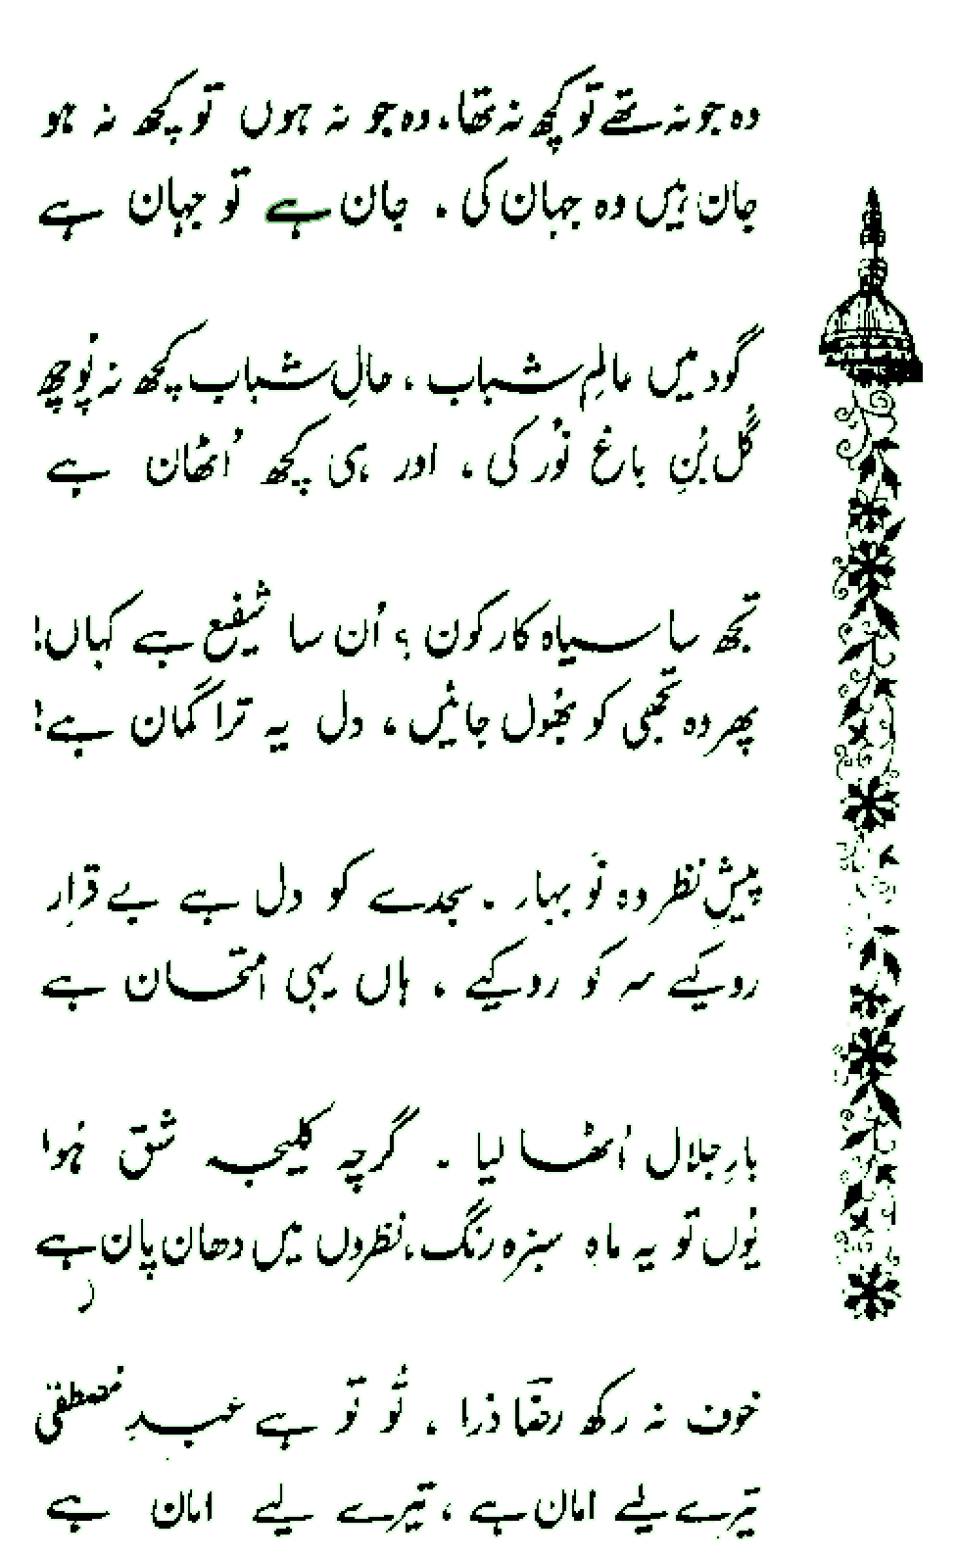 وہ جو نہ تھے تو کچھ نہ تھا، وہ جو نہ ہوں تو کچھ نہ ہو
جان ہیں وہ جہان کی ۔ جان ہے تو جہان ہے
گود میں عالمِ شباب ، حالِ شباب کچھ نہ پُوچھ
گُل بُنِ باغِ نُور کی ، اور ہی کچھ اُٹھان ہے
تجھ سا سیاہ کار کون ؟ اُن سا شفیع ہے کہاں!
پھر وہ تجھی کو بھُول جائیں ، دل یہ ترا گمان ہے!
پیشِ نظر وہ نَو بہار ۔ سجدے کو دل ہے بے قرار
روکیے سر کو روکیے ، ہاں یہی امتحان ہے
بارِ جلال اُٹھا لیا ۔ گرچہ کلیجہ شق ہُوا
یُوں تو یہ ماہِ سبزہ رنگ، نظروں میں دھان پان ہے
خوف نہ رکھ رضؔا ذرا ۔ تُو تو ہے عبدِ مصطفٰی
تیرے لیے امان ہے ، تیرے لیے امان ہے